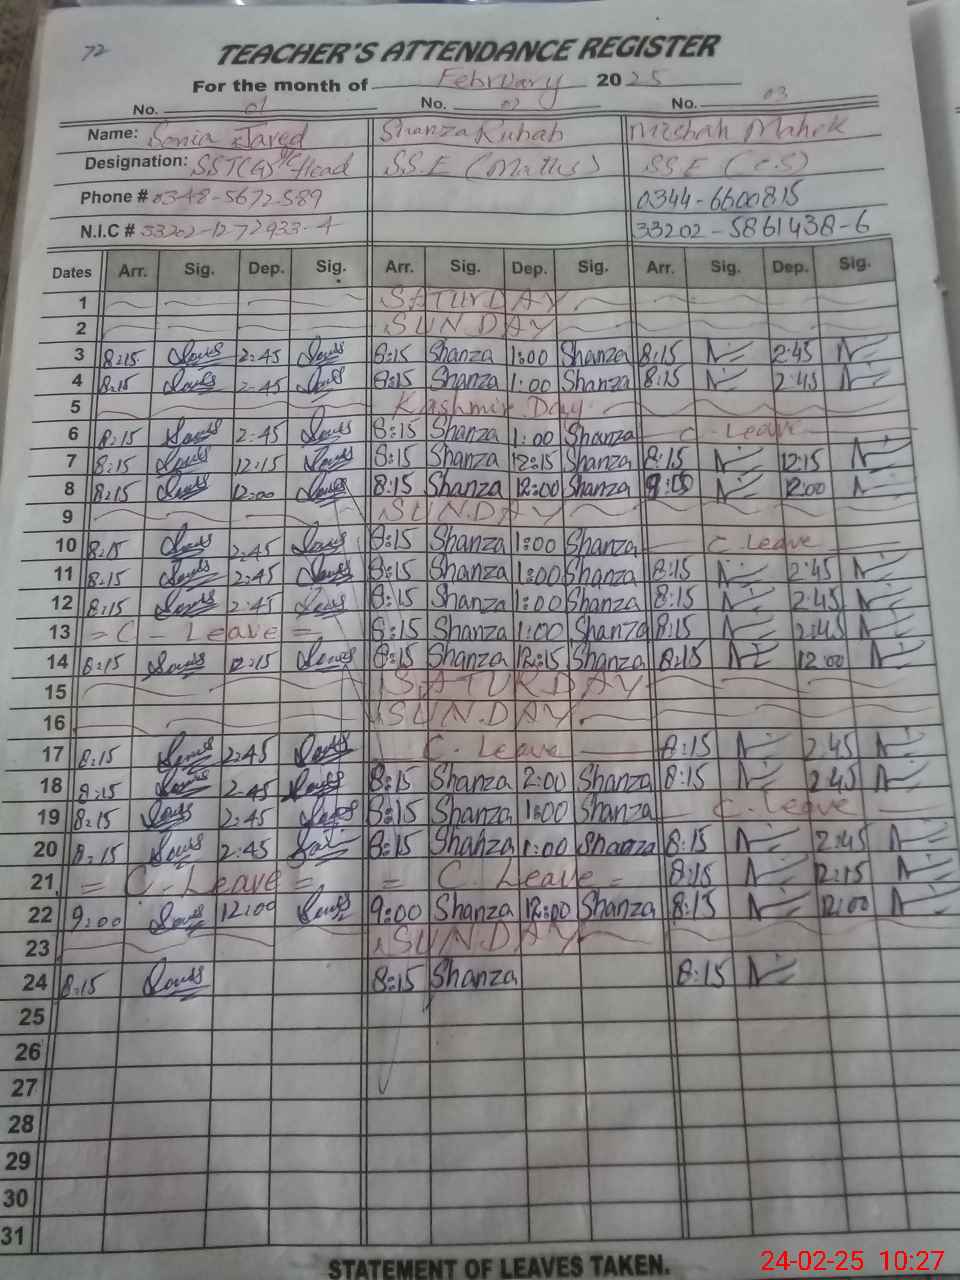 72
TEACHER'S ATTENDANCE REGISTER
For the month of February 2025
No. 01 No. 02 No. 03
Name: Sonia Javed Shanza Rubab Misbah Mahek
Designation: SST(G) Head S.S.E (Maths) S.S.E (C.S)
Phone # 0348-5672589 0344-6600815
N.I.C # 33202-1272933-4 33202-5861438-6
Dates Arr. Sig. Dep. Sig. Arr. Sig. Dep. Sig. Arr. Sig. Dep. Sig.
1 SATURDAY
2 SUNDAY
3 8:15 2:45 8:15 Shanza 1:00 Shanza 8:15 2:45
4 8:15 2:45 8:15 Shanza 1:00 Shanza 8:15 2:45
5 Kashmir Day
6 8:15 2:45 8:15 Shanza 1:00 Shanza C. Leave
7 8:15 12:15 8:15 Shanza 12:15 Shanza 8:15 12:15
8 8:15 12:00 8:15 Shanza 12:00 Shanza 9:00 12:00
9 SUNDAY
10 8:15 2:45 8:15 Shanza 1:00 Shanza C. Leave
11 8:15 2:45 8:15 Shanza 1:00 Shanza 8:15 2:45
12 8:15 2:45 8:15 Shanza 1:00 Shanza 8:15 2:45
13 = C - Leave = 8:15 Shanza 1:00 Shanza 8:15 2:45
14 8:15 12:15 8:15 Shanza 12:15 Shanza 8:15 12:00
15 SATURDAY
16 SUNDAY
17 8:15 2:45 C. Leave 8:15 2:45
18 8:15 2:45 8:15 Shanza 2:00 Shanza 8:15 2:45
19 8:15 2:45 8:15 Shanza 1:00 Shanza C. Leave
20 8:15 2:45 8:15 Shanza 1:00 Shanza 8:15 2:45
21 = C - Leave = = C. Leave = 8:15 12:15
22 9:00 12:00 9:00 Shanza 12:00 Shanza 8:15 12:00
23 SUNDAY
24 8:15 8:15 Shanza 8:15
25
26
27
28
29
30
31
STATEMENT OF LEAVES TAKEN.
24-02-25 10:27